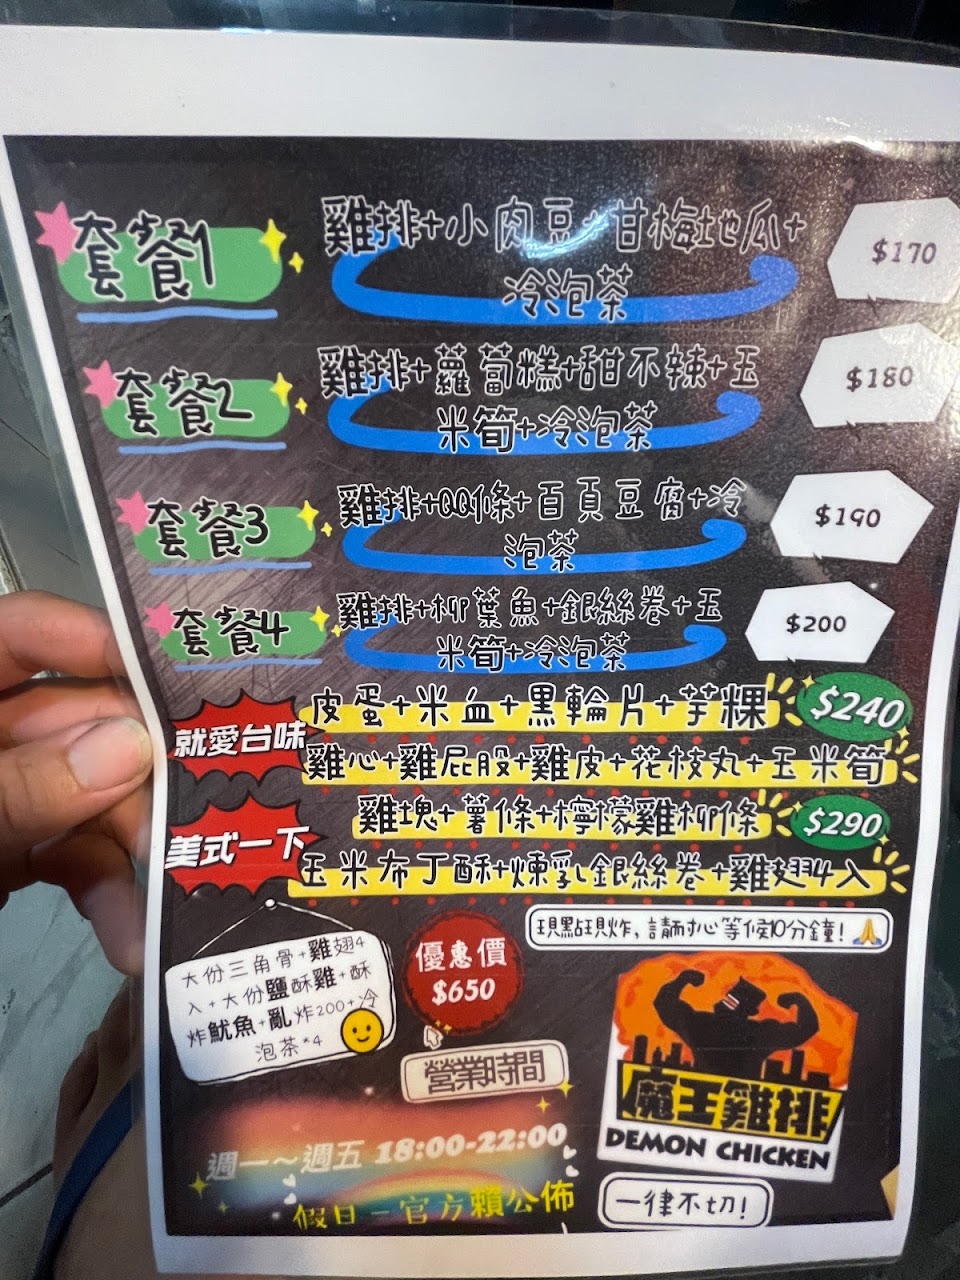 套餐1
雞排+小肉豆+甘梅地瓜+
冷泡茶
$170
套餐2
雞排+蘿蔔糕+甜不辣+玉
米筍+冷泡茶
$180
套餐3
雞排+QQ條+百頁豆腐+冷
泡茶
$190
套餐4
雞排+柳葉魚+銀絲卷+玉
米筍+冷泡茶
$200
就愛台味
皮蛋+米血+黑輪片+芋粿
$240
雞心+雞屁股+雞皮+花枝丸+玉米筍
美式一下
雞塊+薯條+檸檬雞柳條
$290
玉米布丁酥+煉乳銀絲卷+雞翅4入
現點現炸,請耐心等候10分鐘!🙏
大份三角骨+雞翅4
入+大份鹽酥雞+酥
炸魷魚+亂炸200+冷
泡茶*4
優惠價
$650
營業時間
週一~週五 18:00-22:00
假日-官方賴公佈
魔王雞排
DEMON CHICKEN
一律不切!